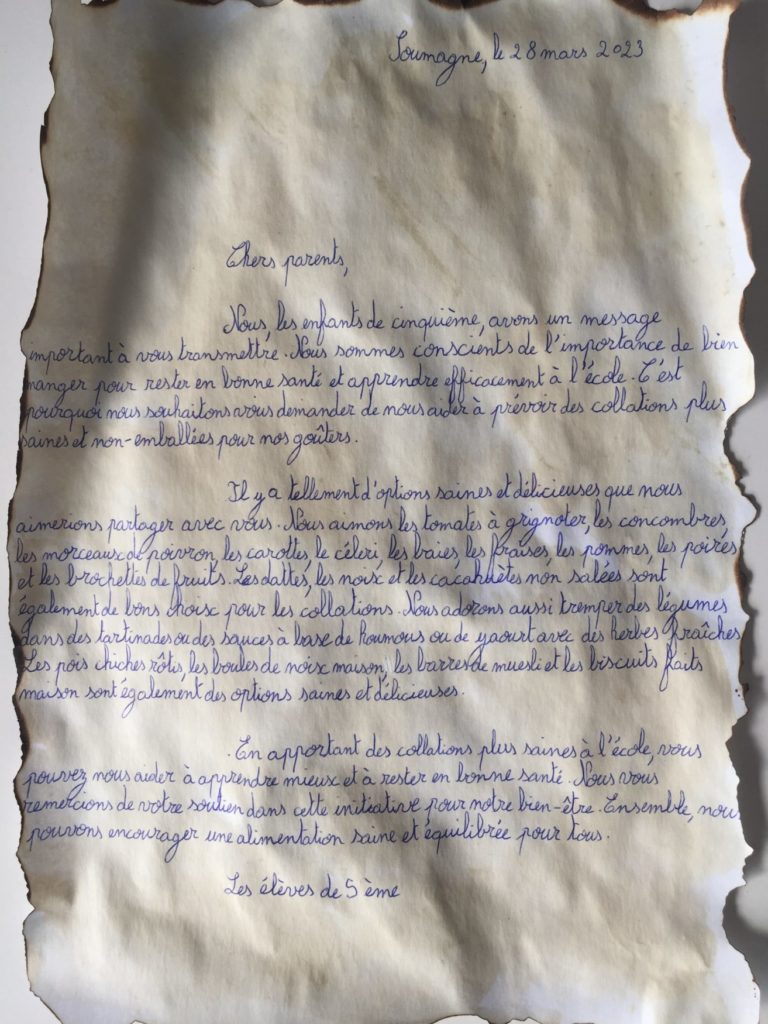 Soumagne, le 28 mars 2023
Chers parents,
Nous, les enfants de cinquième, avons un message
important à vous transmettre. Nous sommes conscients de l'importance de bien
manger pour rester en bonne santé et apprendre efficacement à l'école. C'est
pourquoi nous souhaitons vous demander de nous aider à prévoir des collations plus
saines et non-emballées pour nos goûters.
Il y a tellement d'options saines et délicieuses que nous
aimerions partager avec vous. Nous aimons les tomates à grignoter, les concombres,
les morceaux de poivron, les carottes, le céleri, les baies, les fraises, les pommes, les poires
et les brochettes de fruits. Les dattes, les noix et les cacahuètes non salées sont
également de bons choix pour les collations. Nous adorons aussi tremper des légumes
dans des tartinades ou des sauces à base de houmous ou de yaourt avec des herbes fraîches.
Les pois chiches rôtis, les boules de noix maison, les barres de muesli et les biscuits faits
maison sont également des options saines et délicieuses.
En apportant des collations plus saines à l'école, vous
pouvez nous aider à apprendre mieux et à rester en bonne santé. Nous vous
remercions de votre soutien dans cette initiative pour notre bien-être. Ensemble, nous
pouvons encourager une alimentation saine et équilibrée pour tous.
Les élèves de 5ème